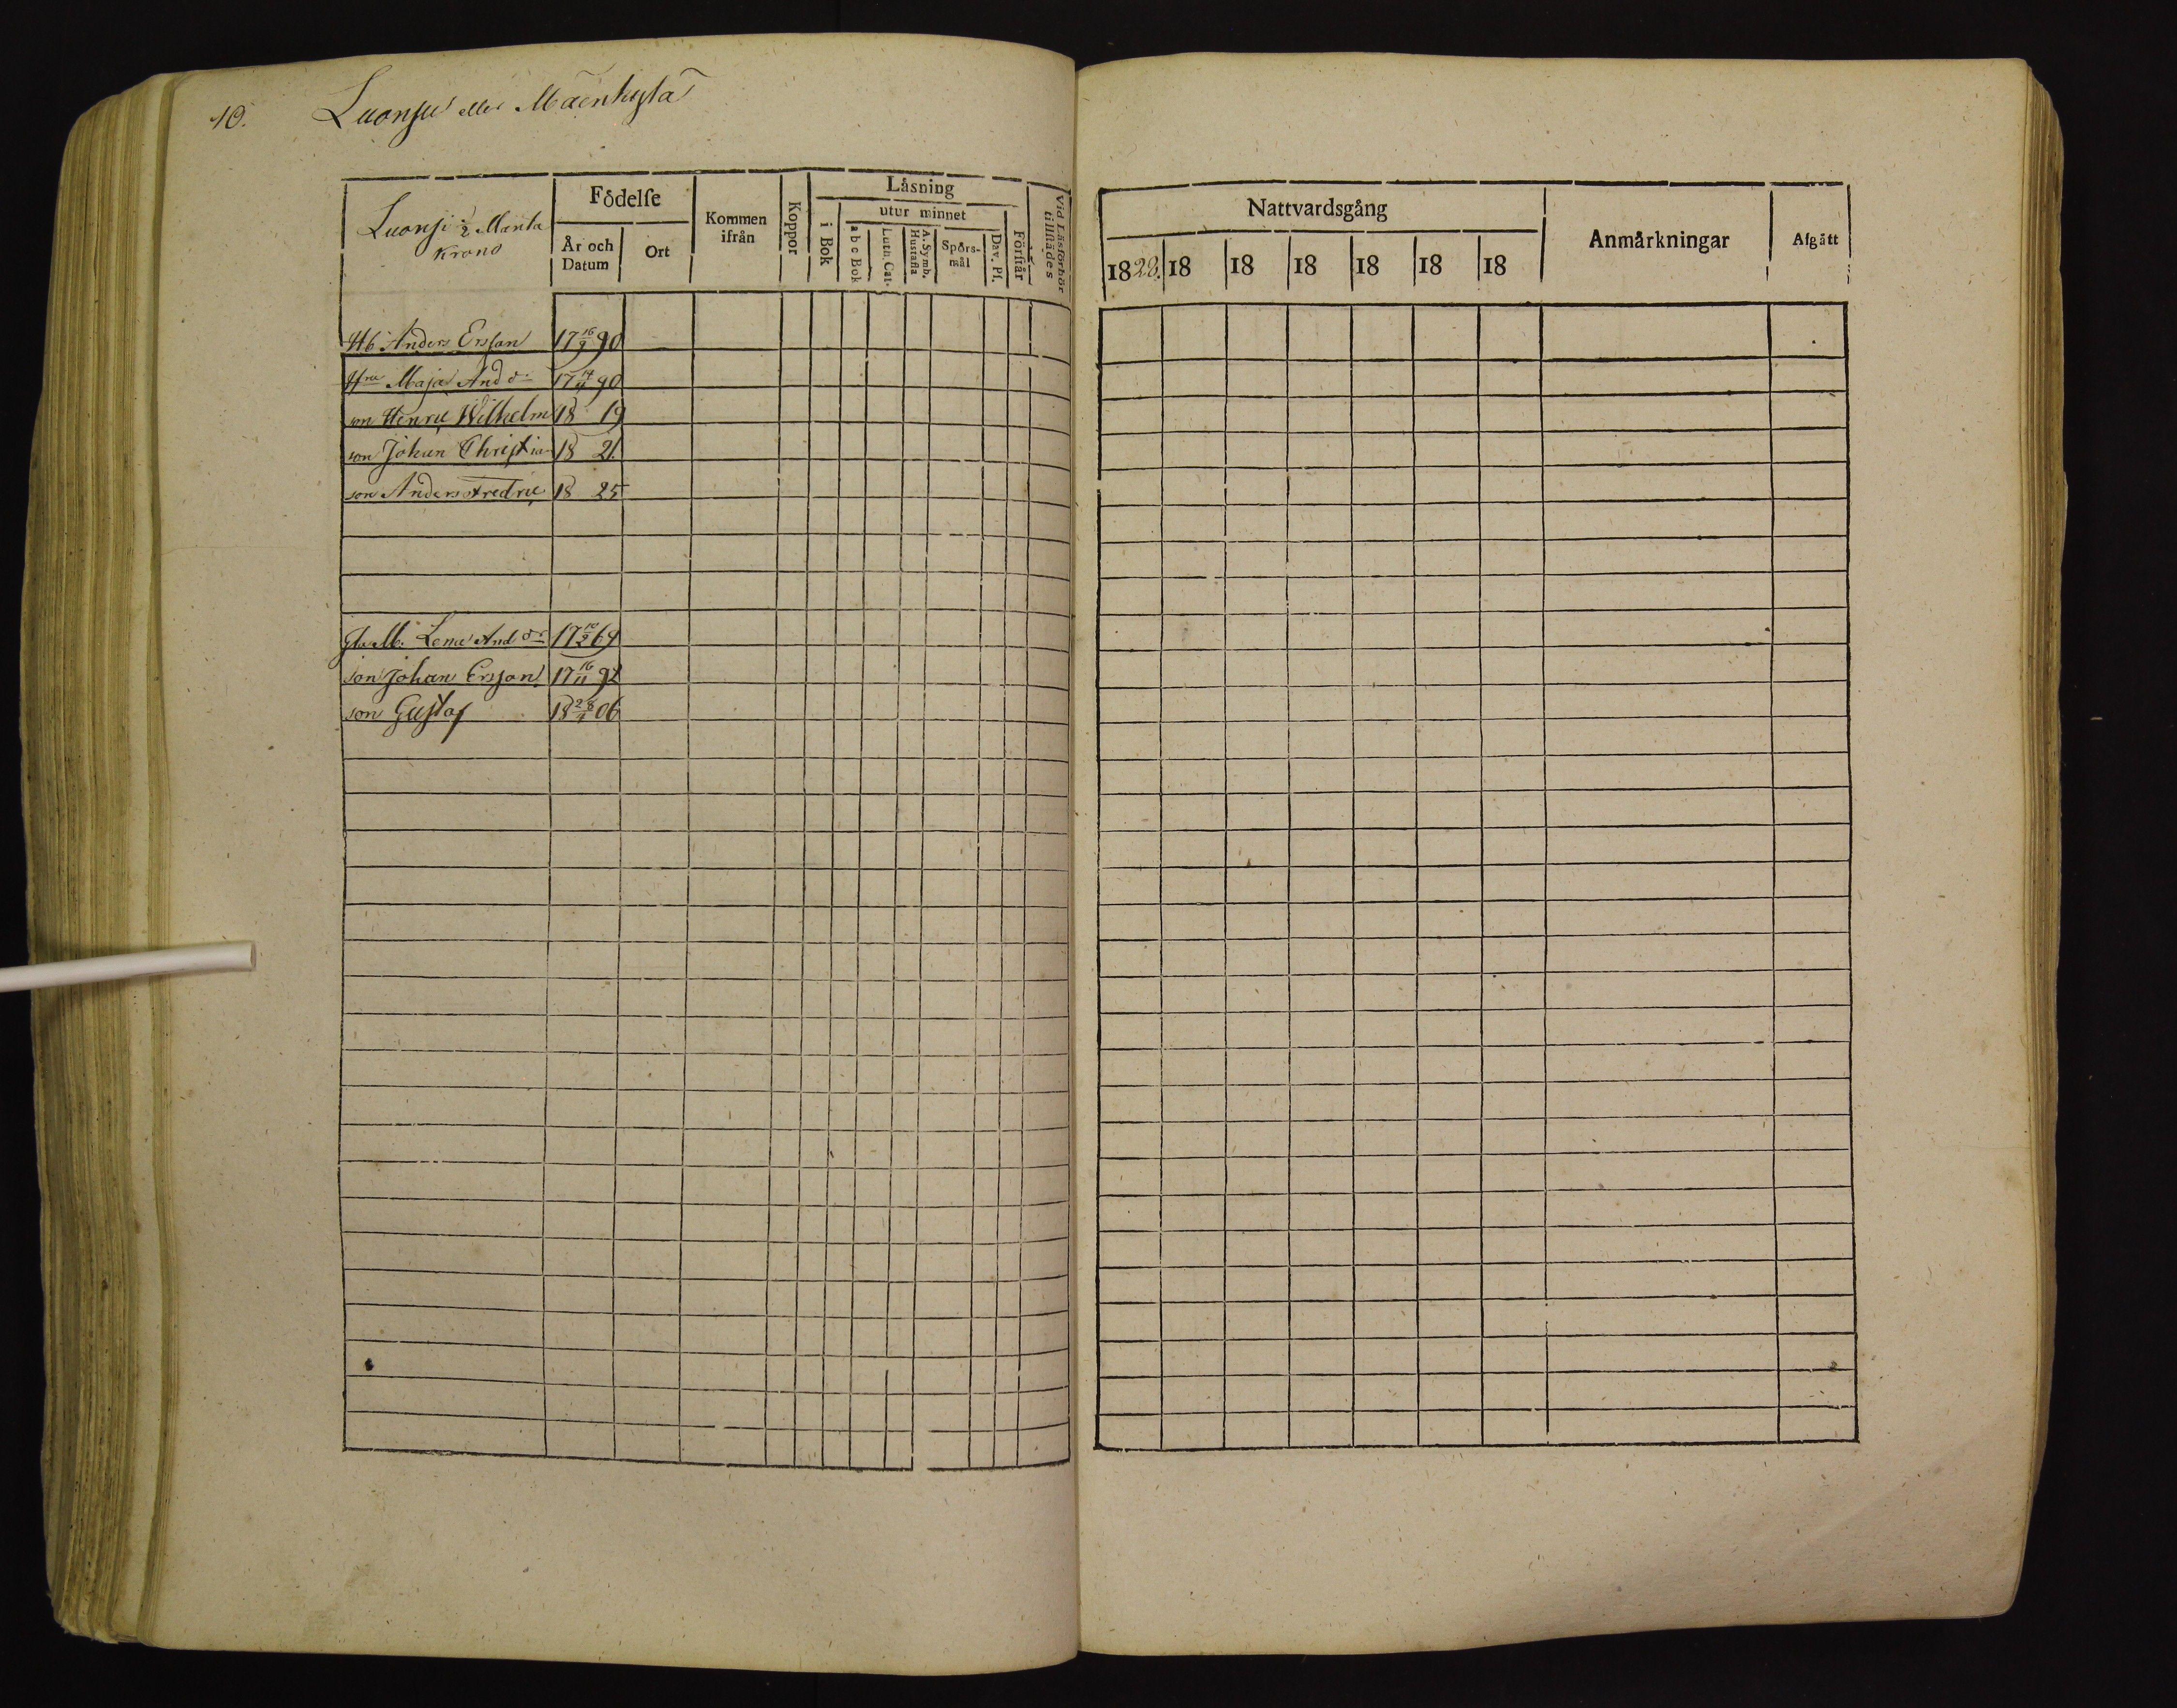 10. Luonsu eller Mäenkylä
Luonsi ½ Manta
Krono
Födelse
År och Datum
Ort
Kommen ifrån
Koppor
Läsning
i Bok
utur minnet
a b c Bok
Luth. Cat.
A. Symb. Hustafla
Spörs-mål
Dav. Ps.
Förstår
Vid Läsförhör tillstädes
Nattvardsgång
1828. 18 18 18 18 18 18
Anmärkningar
Afgått
Hb Anders Ersson 17 16/9 90
Hru Maja And dr 17 14/11 90
son Henric Wilhelm 18 19
son Johan Christian 18 21.
son Anders Fredric 18 25
Lena And dr 17 10/2 69
son Johan Ersson 17 16/11 92
son Gustaf 18 28/4 06